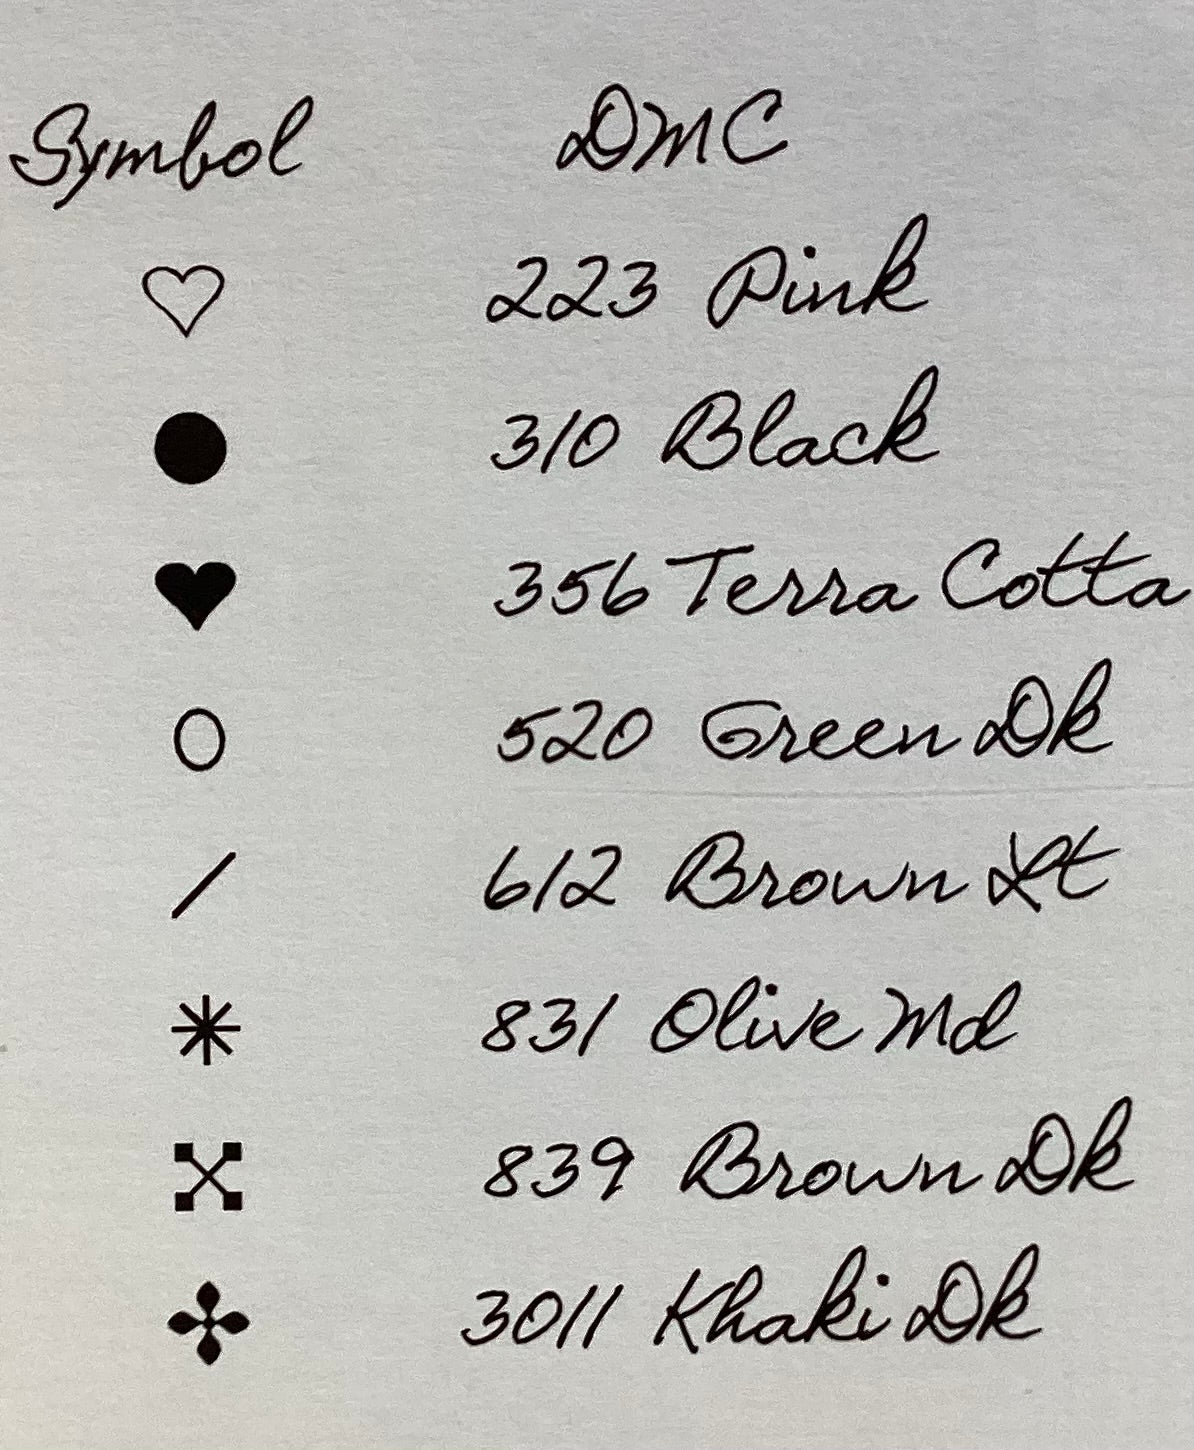 Symbol DMC
♡ 223 Pink
● 310 Black
♥ 356 Terra Cotta
O 520 Green Dk
/ 612 Brown Lt
✳ 831 Olive Md
839 Brown Dk
✤ 3011 Khaki Dk